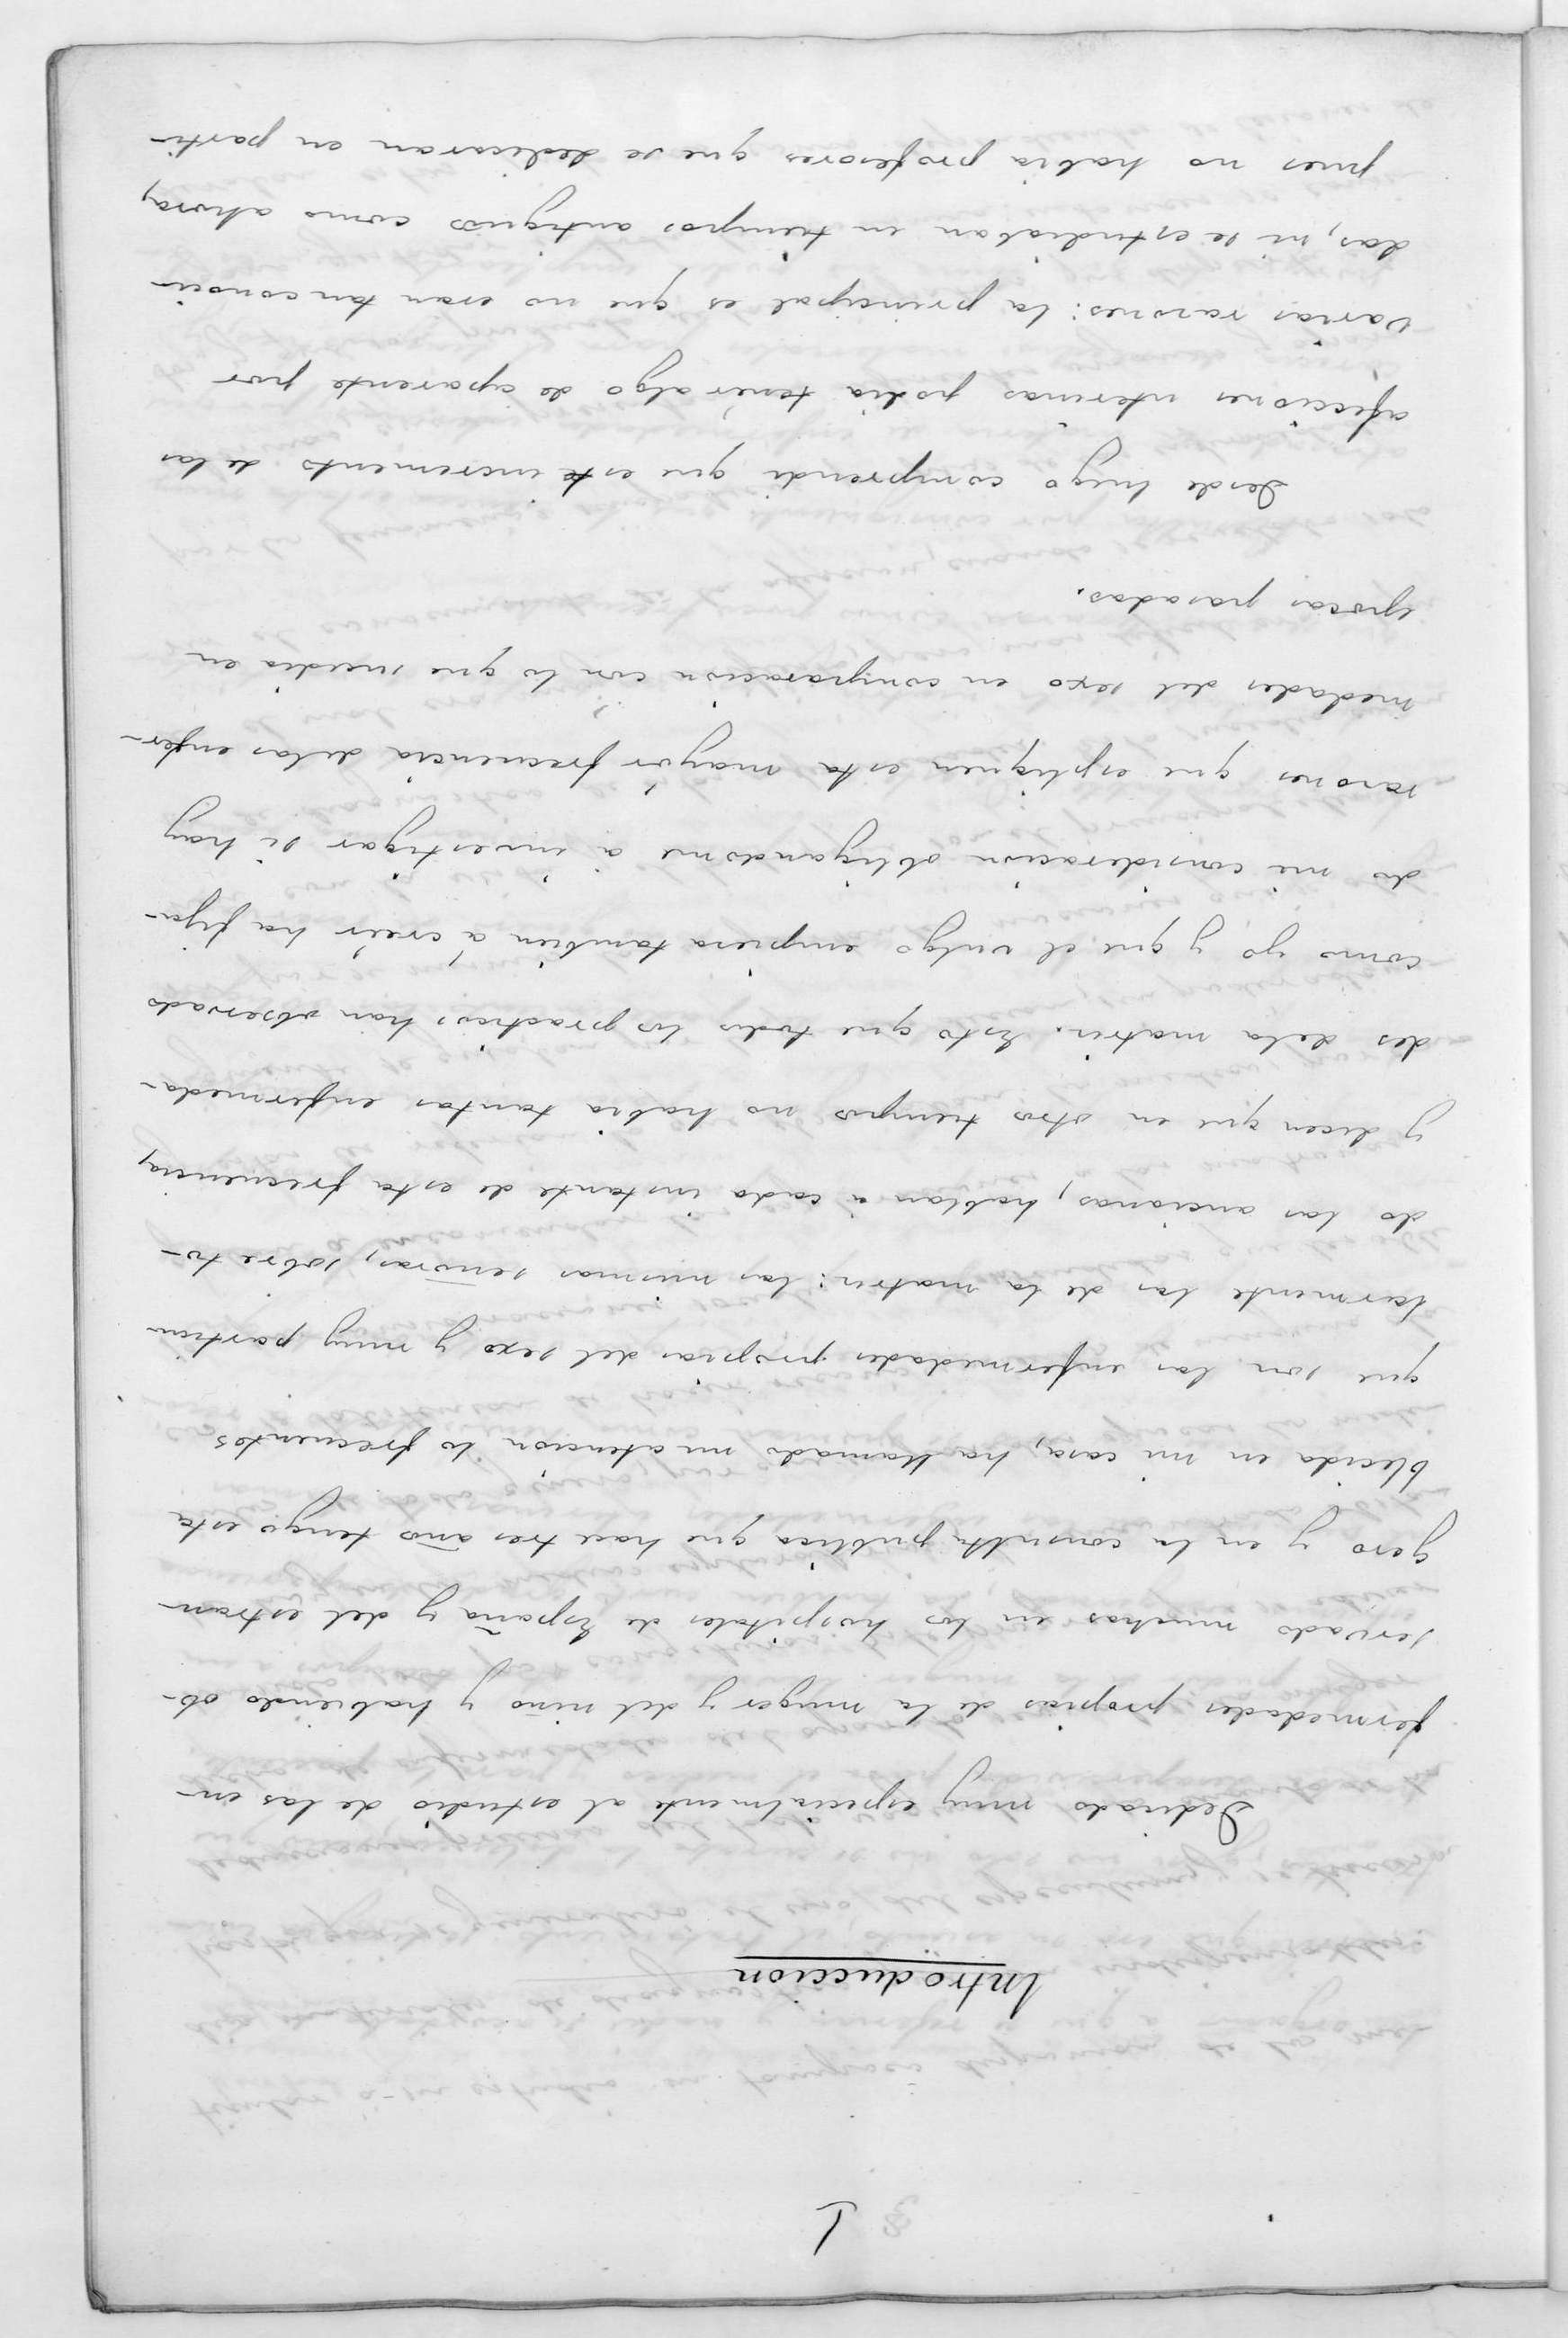 1
Introduccion
Dedicado muy especialmente al estudio de las en-
fermedades propias de la muger y del niño y habiendo ob-
servado muchas en los hospitales de España y del estran-
gero y en la consulta publica que hace tres años tengo esta
blecida en mi casa, ha llamado mi atencion lo frecuentes
que son las enfermedades propias del sexo y muy particu
larmente las de la matriz: las mismas señoras, sobre to-
do las ancianas, hablan á cada instante de esta frecuencia,
y dicen que en otros tiempos no habia tantas enfermeda-
des de la matriz. Esto que todos los practicos han observado
como yo y que el vulgo empieza tambien á creér ha fija-
do mi consideracion obligandome á investigar si hay
razones que espliquen esta mayor frecuencia de las enfer-
medades del sexo en comparacion con lo que sucedia en
epocas pasadas.
Desde luego comprendi que este incremento de las
afecciones uterinas podia tenér algo de aparente por
varias razones: la principal es que no eran tan conoci-
das, ni se estudiaban en tiempos antiguos como ahora,
pues no habia profesores que se dedicaran en parti-